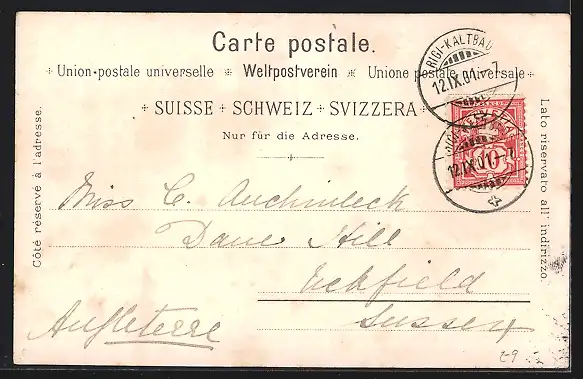 Carte postale.
Union-postale universelle * Weltpostverein * Unione postale universale
SUISSE + SCHWEIZ + SVIZZERA
Nur für die Adresse.
Côté réservé à l'adresse.
Lato riservato all' indirizzo.
RIGI-KALTBAD
12.IX.01.-7
12.IX.01.-7
10
Miss C. Auchinleck
Dane Hill
Uckfield
Sussex
Angleterre